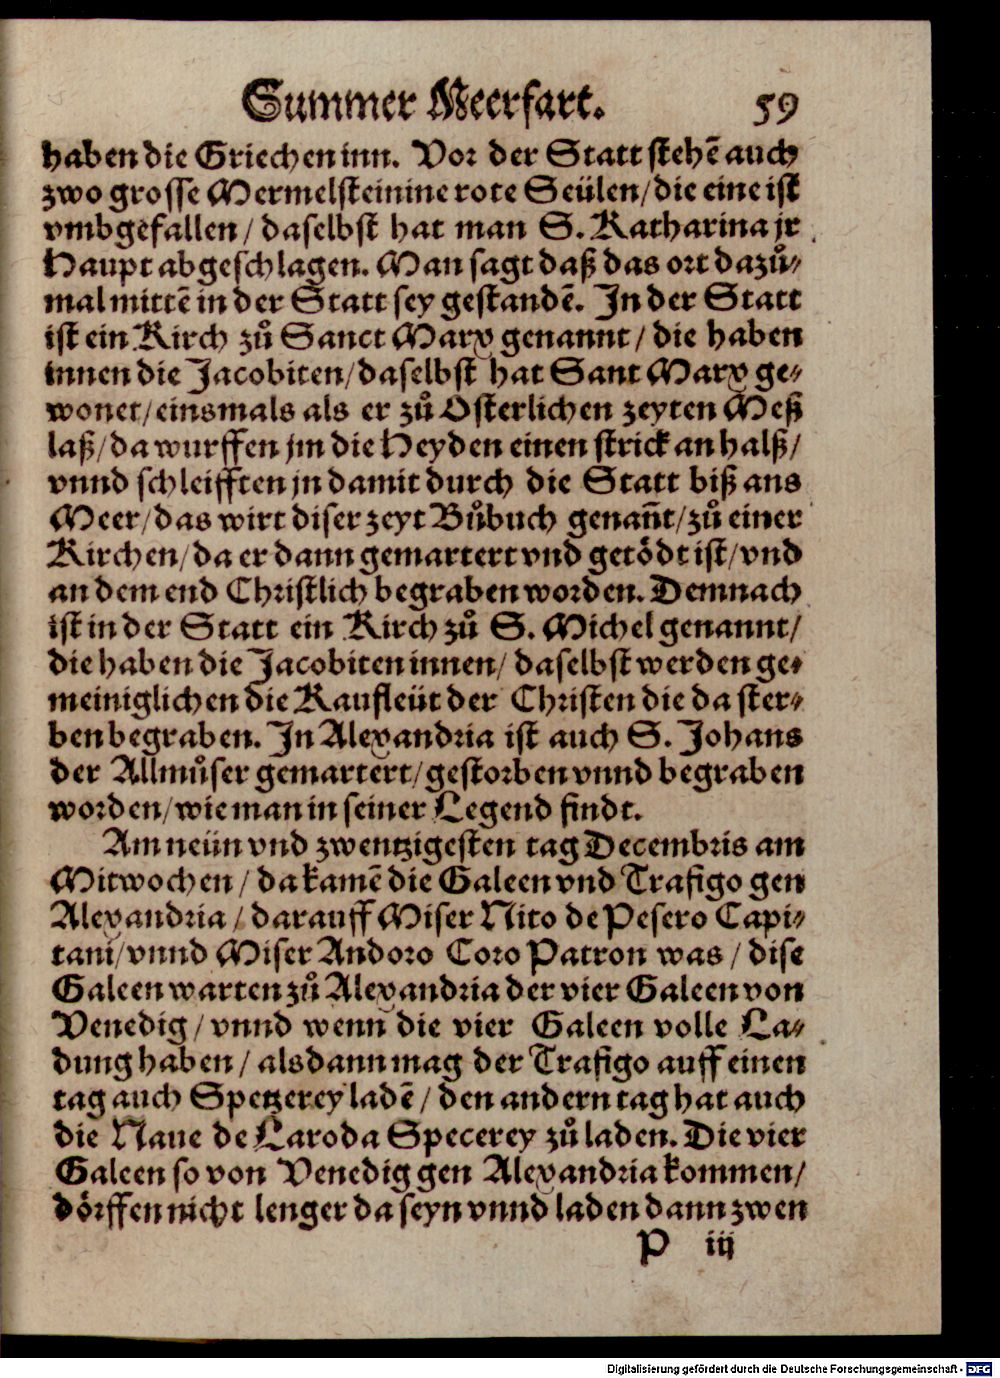 Summer Meerfart. 59
haben die Griechen inn. Vor der Statt stehẽ auch
zwo grosse Mermelsteinine rote Seülen/die eine ist
vmbgefallen/ daselbst hat man S. Katharina jr
Haupt abgeschlagen. Man sagt daß das ort dazů⸗
mal mittẽ in der Statt sey gestandẽ. In der Statt
ist ein Kirch zů Sanct Marx genannt/ die haben
innen die Jacobiten/daselbst hat Sant Marx ge⸗
wonet/einsmals als er zů Osterlichen zeyten Meß
laß/da wurffen jm die Heyden einen strick an halß/
vnnd schleifften jn damit durch die Statt biß ans
Meer/das wirt diser zeyt Bůbuch genañt/zů einer
Kirchen/da er dann gemartert vnd getödt ist/vnd
an dem end Christlich begraben worden. Demnach
ist in der Statt ein Kirch zů S. Michel genannt/
die haben die Jacobiten innen/ daselbst werden ge⸗
meiniglichen die Kaufleüt der Christen die da ster⸗
ben begraben. In Alexandria ist auch S. Johans
der Allmůser gemartert/gestorben vnnd begraben
worden/wie man in seiner Legend findt.
Am neün vnd zwentzigesten tag Decembris am
Mitwochen/ da kamẽ die Galeen vnd Trafigo gen
Alexandria/ darauff Miser Nito de Pesero Capi⸗
tani/vnnd Miser Andoro Coro Patron was/ dise
Galeen warten zů Alexandria der vier Galeen von
Venedig/ vnnd wenn die vier Galeen volle La⸗
dung haben/ alsdann mag der Trafigo auff einen
tag auch Spetzerey ladẽ/ den andern tag hat auch
die Naue de Laroda Specerey zů laden. Die vier
Galeen so von Venedig gen Alexandria kommen/
dörffen nicht lenger da seyn vnnd laden dann zwen
P iij
Digitalisierung gefördert durch die Deutsche Forschungsgemeinschaft - DFG